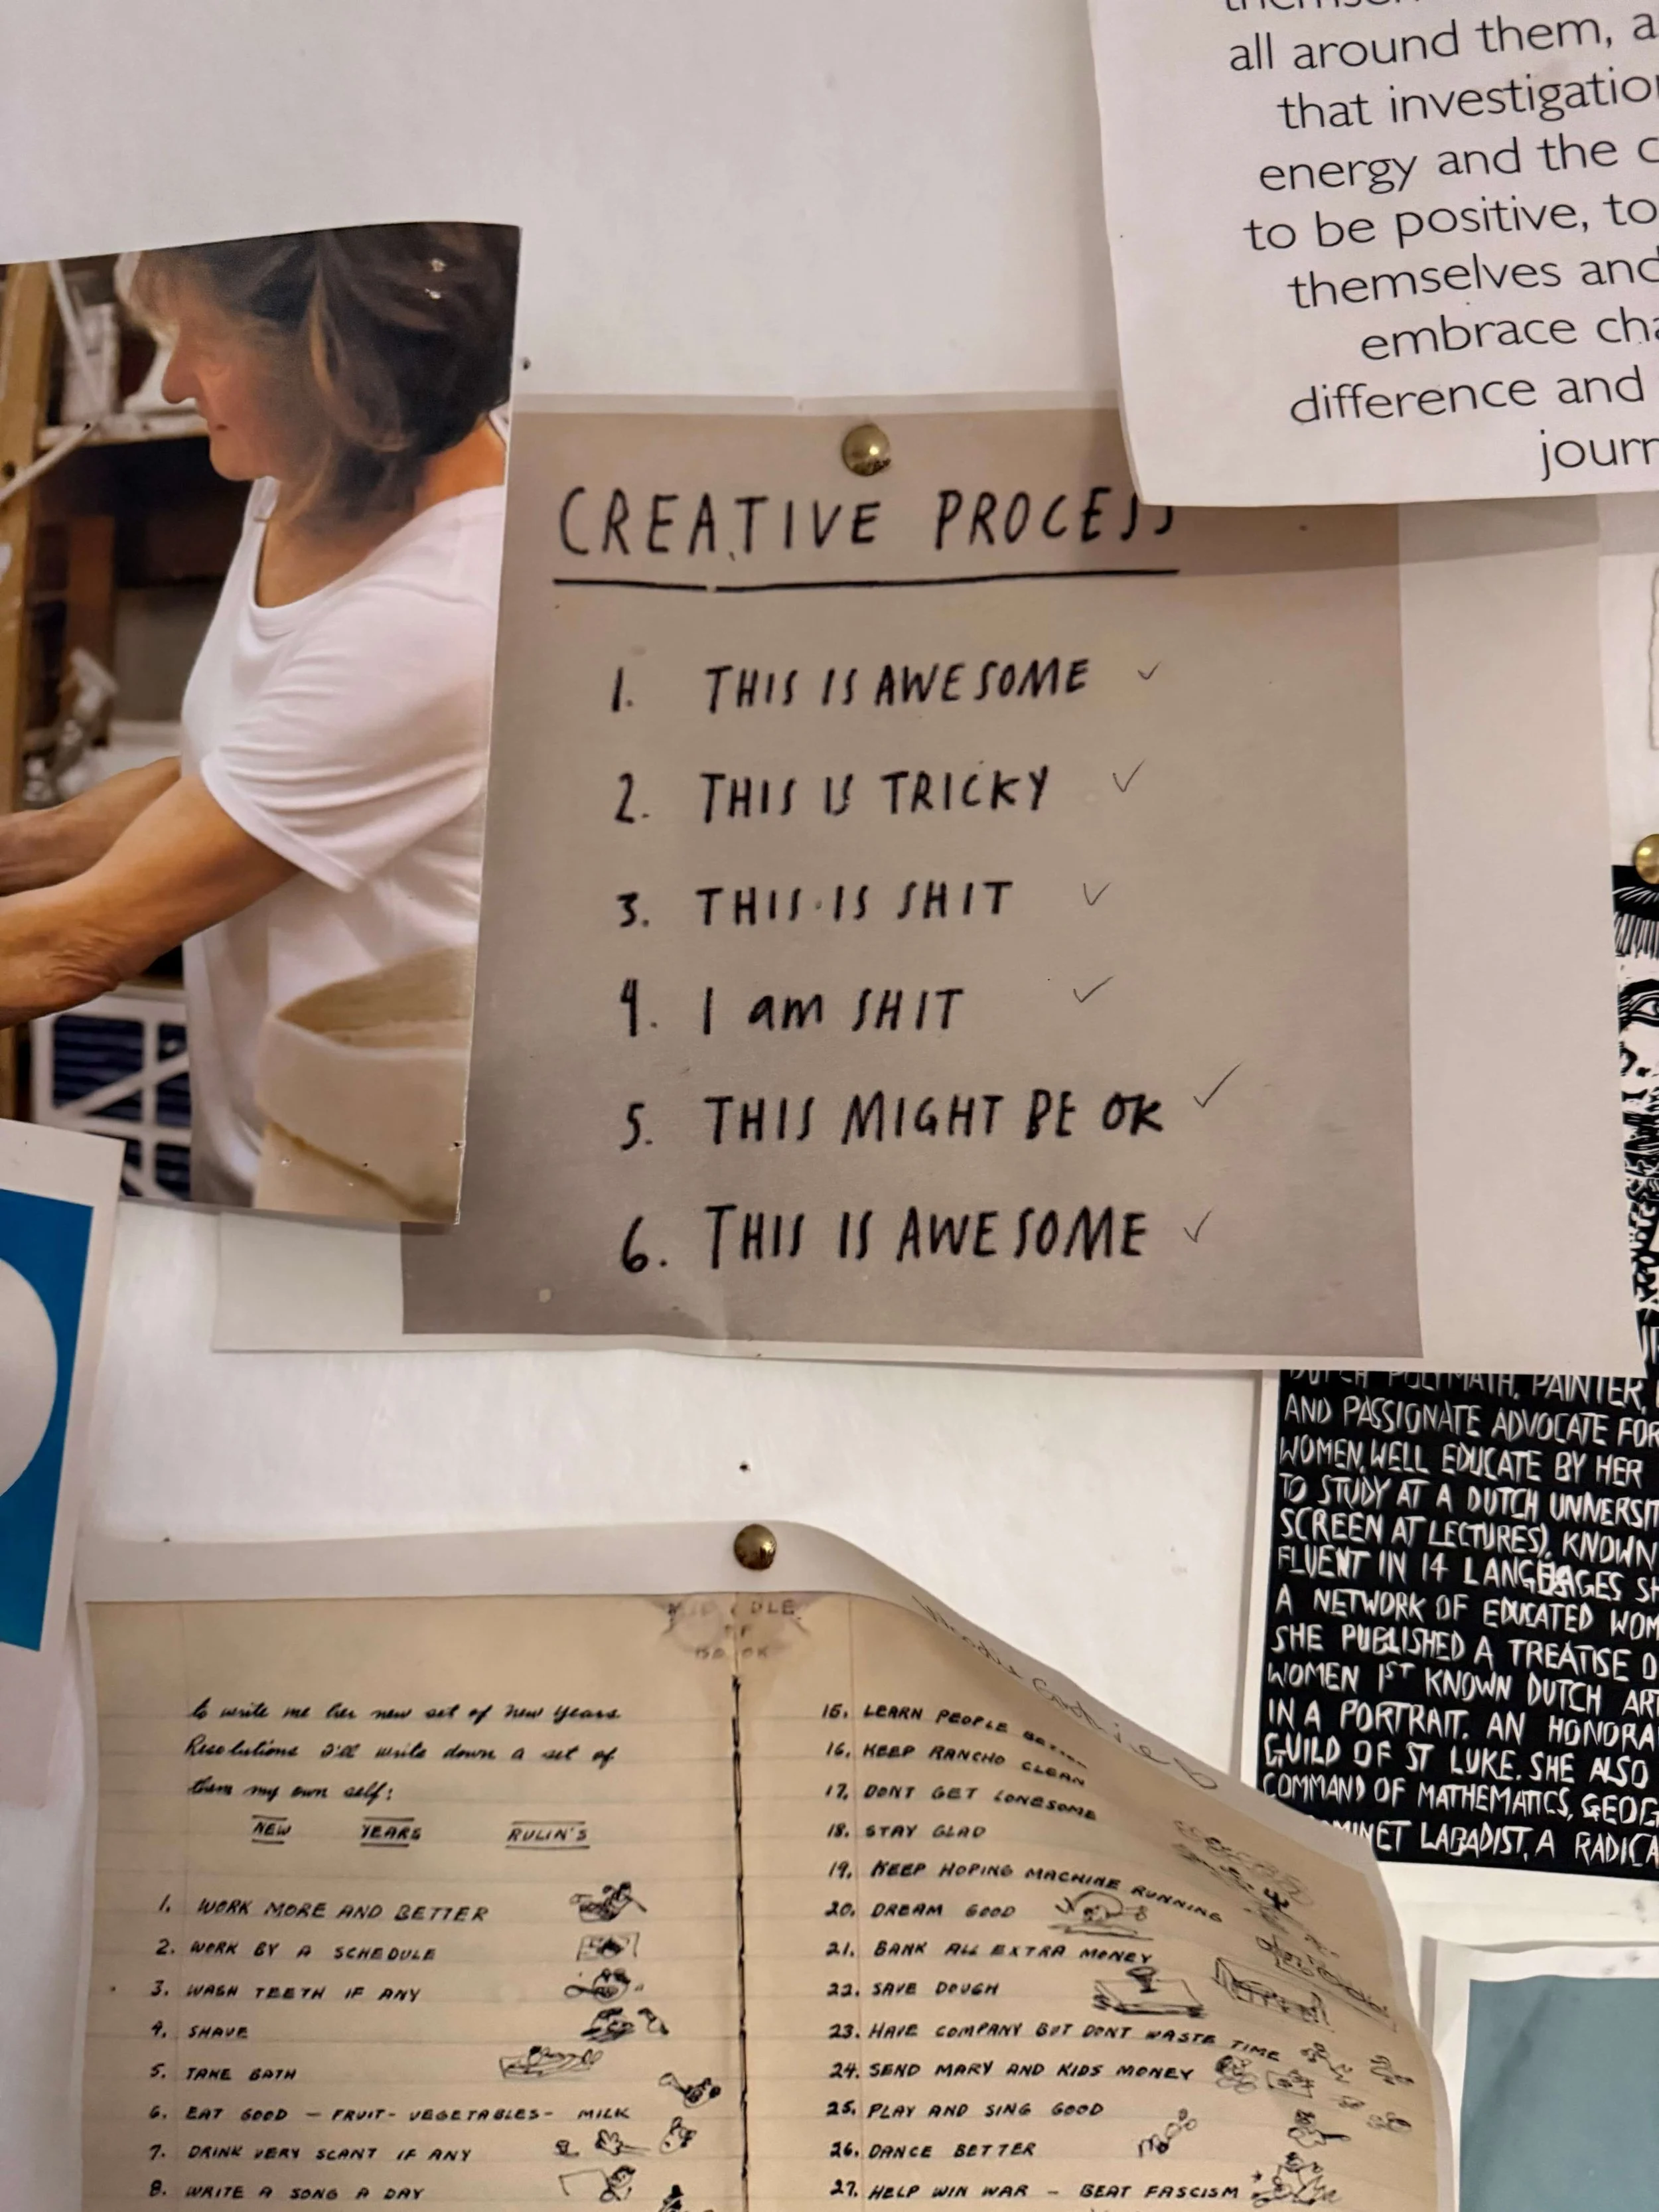 all around them, a
that investigatio
energy and the c
to be positive, to
themselves and
embrace cha
difference and
journ
CREATIVE PROCESS
1. THIS IS AWESOME ✓
2. THIS IS TRICKY ✓
3. THIS IS SHIT ✓
4. I am SHIT ✓
5. THIS MIGHT BE OK ✓
6. THIS IS AWESOME ✓
DUTCH POLYMATH, PAINTER,
AND PASSIONATE ADVOCATE FOR
WOMEN, WELL EDUCATE BY HER
TO STUDY AT A DUTCH UNIVERSIT
SCREEN AT LECTURES). KNOWN
FLUENT IN 14 LANGUAGES SH
A NETWORK OF EDUCATED WOM
SHE PUBLISHED A TREATISE O
WOMEN 1ST KNOWN DUTCH ART
IN A PORTRAIT. AN HONORA
GUILD OF ST LUKE. SHE ALSO
COMMAND OF MATHEMATICS, GEOG
LABADIST, A RADICA
MIDDLE
OF
BOOK
to write me her new set of New Years
Resolutions I'll write down a set of
them my own self:
NEW YEARS RULIN'S
1. WORK MORE AND BETTER
2. WORK BY A SCHEDULE
3. WASH TEETH IF ANY
4. SHAVE
5. TAKE BATH
6. EAT GOOD — FRUIT - VEGETABLES - MILK
7. DRINK VERY SCANT IF ANY
8. WRITE A SONG A DAY
15. LEARN PEOPLE BETTER
16. KEEP RANCHO CLEAN
17. DONT GET LONESOME
18. STAY GLAD
19. KEEP HOPING MACHINE RUNNING
20. DREAM GOOD
21. BANK ALL EXTRA MONEY
22. SAVE DOUGH
23. HAVE COMPANY BUT DONT WASTE TIME
24. SEND MARY AND KIDS MONEY
25. PLAY AND SING GOOD
26. DANCE BETTER
27. HELP WIN WAR — BEAT FASCISM